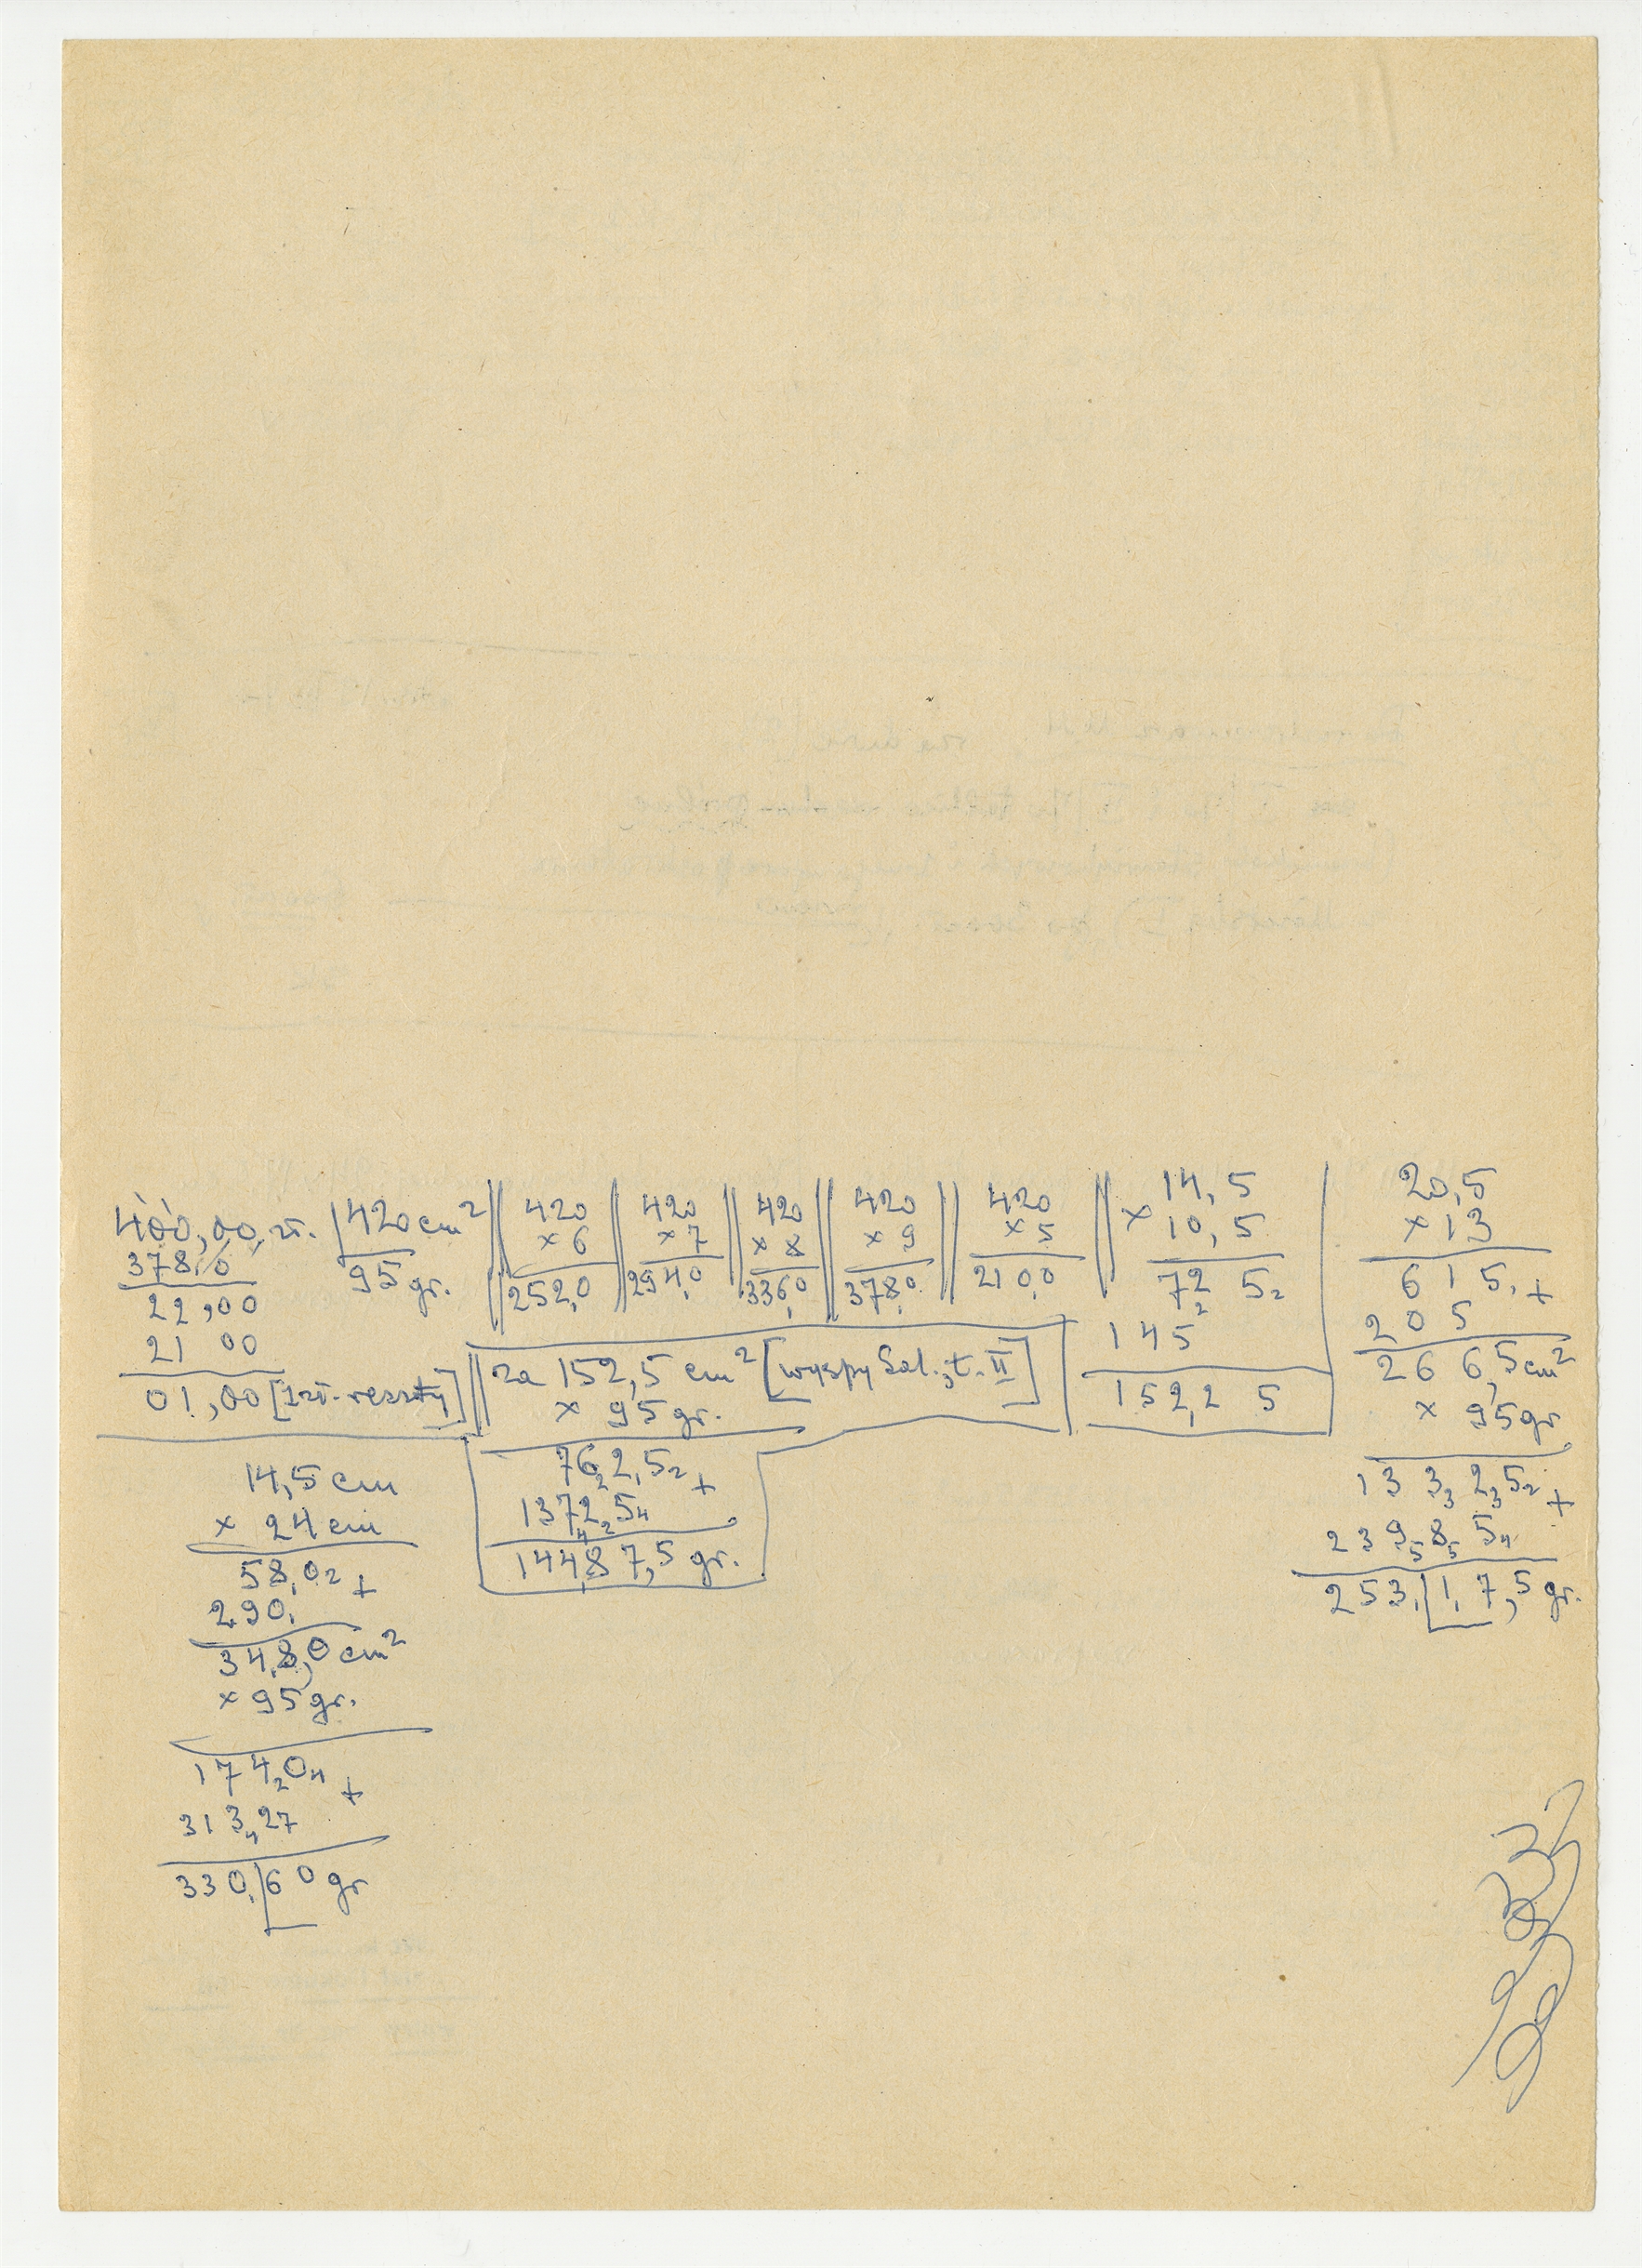 400,00 zł. | 420 cm²
378,0 95 gr.
22,00
21 00
01,00 [1 zł. reszty]
420
× 6
252,0
420
× 7
294,0
420
× 8
336,0
420
× 9
378,0
420
× 5
210,0
14,5
× 10,5
72 5
145
152,2 5
20,5
× 13
6 1 5 +
2 0 5
26 6,5 cm²
× 95 gr
13 3 2 5 +
2 3 9 8 5
253,1 7,5 gr.
za 152,5 cm² [wyspy Sal., t. II]
× 95 gr.
762,5 +
1372 5
14487,5 gr.
14,5 cm
× 24 cm
58,0 +
290
348,0 cm²
× 95 gr.
174 0 +
313 2
330,60 gr